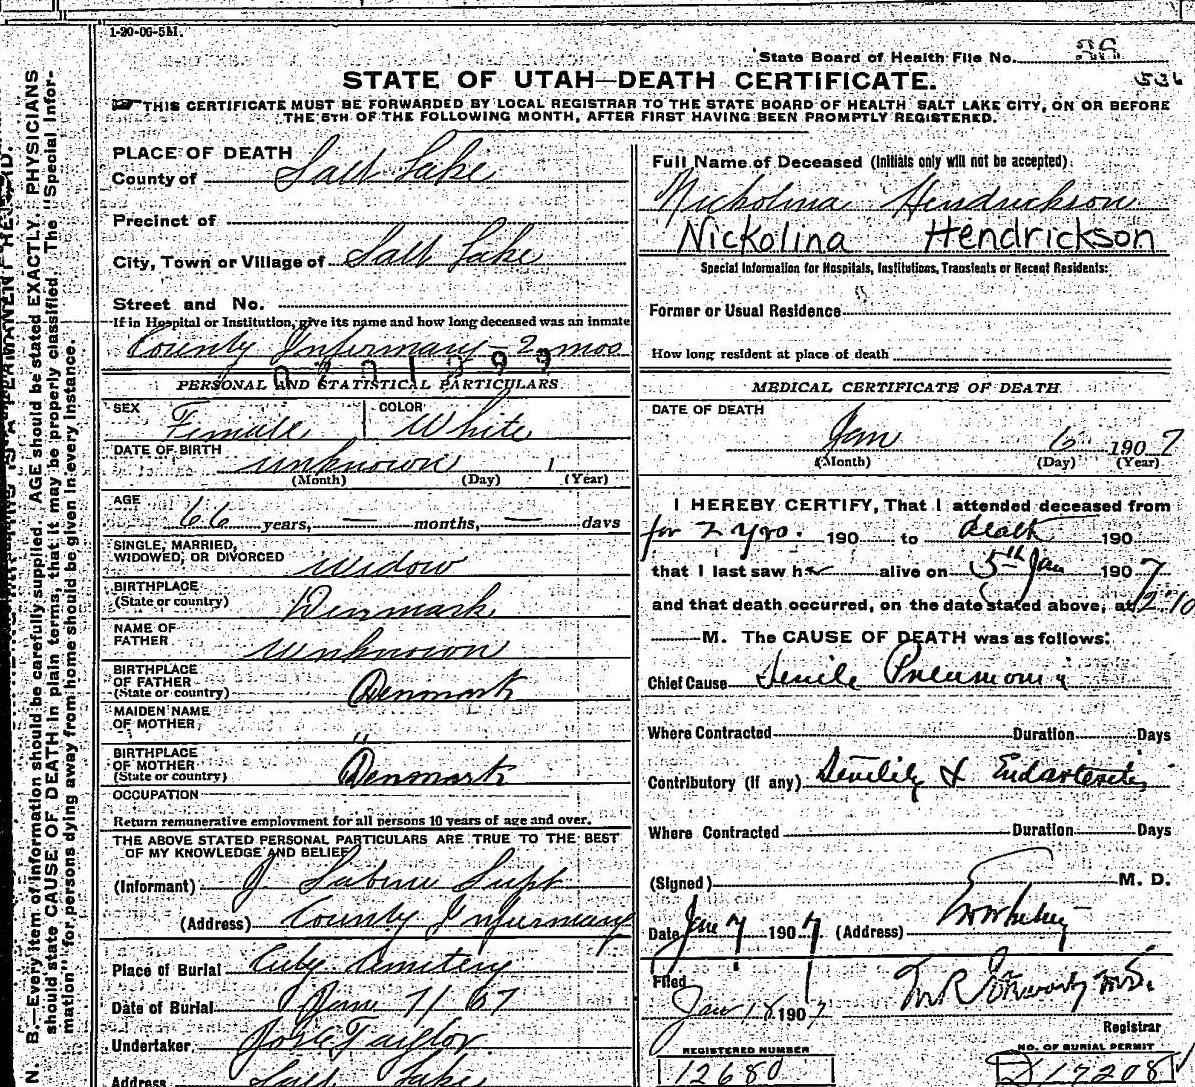 1-20-06-5M.
State Board of Health File No.
536
STATE OF UTAH—DEATH CERTIFICATE.
THIS CERTIFICATE MUST BE FORWARDED BY LOCAL REGISTRAR TO THE STATE BOARD OF HEALTH SALT LAKE CITY, ON OR BEFORE
THE 5TH OF THE FOLLOWING MONTH, AFTER FIRST HAVING BEEN PROMPTLY REGISTERED.
PLACE OF DEATH
County of Salt Lake
Precinct of
City, Town or Village of Salt Lake
Street and No.
If in Hospital or Institution, give its name and how long deceased was an inmate
County Infirmary - 2 mos
PERSONAL AND STATISTICAL PARTICULARS
SEX Female COLOR White
DATE OF BIRTH unknown
(Month) (Day) (Year)
AGE 66 years, — months, — days
SINGLE, MARRIED,
WIDOWED, OR DIVORCED Widow
BIRTHPLACE
(State or country) Denmark
NAME OF
FATHER Unknown
BIRTHPLACE
OF FATHER
(State or country) Denmark
MAIDEN NAME
OF MOTHER "
BIRTHPLACE
OF MOTHER
(State or country) Denmark
OCCUPATION
Return remunerative employment for all persons 10 years of age and over.
THE ABOVE STATED PERSONAL PARTICULARS ARE TRUE TO THE BEST
OF MY KNOWLEDGE AND BELIEF
(Informant) J. Sabine Supt
(Address) County Infirmary
Place of Burial City Cemetery
Date of Burial Jan 7/ 07
Undertaker, Taylor
Address Salt Lake
Full Name of Deceased (Initials only will not be accepted)
Nickolina Hendrickson
Nickolina Hendrickson
Special Information for Hospitals, Institutions, Transients or Recent Residents:
Former or Usual Residence
How long resident at place of death
MEDICAL CERTIFICATE OF DEATH
DATE OF DEATH
Jan 6 1907
(Month) (Day) (Year)
I HEREBY CERTIFY, That I attended deceased from
for 2 yrs. 190 to death 190
that I last saw her alive on 5th Jan 1907
and that death occurred, on the date stated above, at 12:10
M. The CAUSE OF DEATH was as follows:
Chief Cause Senile Pneumonia
Where Contracted Duration Days
Contributory (if any) Senility & Endarteritis
Where Contracted Duration Days
(Signed) M. D.
Date Jan 7 1907 (Address)
Filed
Jan 18 1907
Registrar
REGISTERED NUMBER
12680
NO. OF BURIAL PERMIT
17208
N. B.—Every item of information should be carefully supplied. AGE should be stated EXACTLY. PHYSICIANS
should state CAUSE OF DEATH in plain terms, that it may be properly classified. The "Special Infor-
mation" for persons dying away from home should be given in every instance.